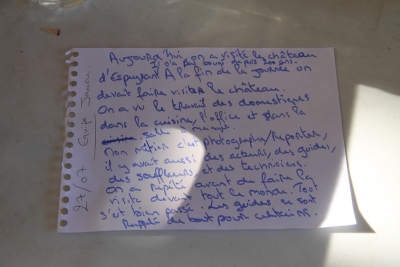 Aujourd'hui on a visité le château
Il n'a pas bougé depuis 200 ans.
d'Espeyran. A la fin de la journée on
devait faire visiter le château.
On a vu le travail des domestiques
dans la cuisine, l'office et dans la
salle à manger.
Mon métier c'est photographe/Reporter,
il y avait aussi des acteurs, des guides,
des souffleurs et des techniciens.
On a répété avant de faire la
visite devant tout le monde. Tout
s'est bien passé. Les guides se sont
rappelé de tout pour certains.
27/07 Equipe Jaune